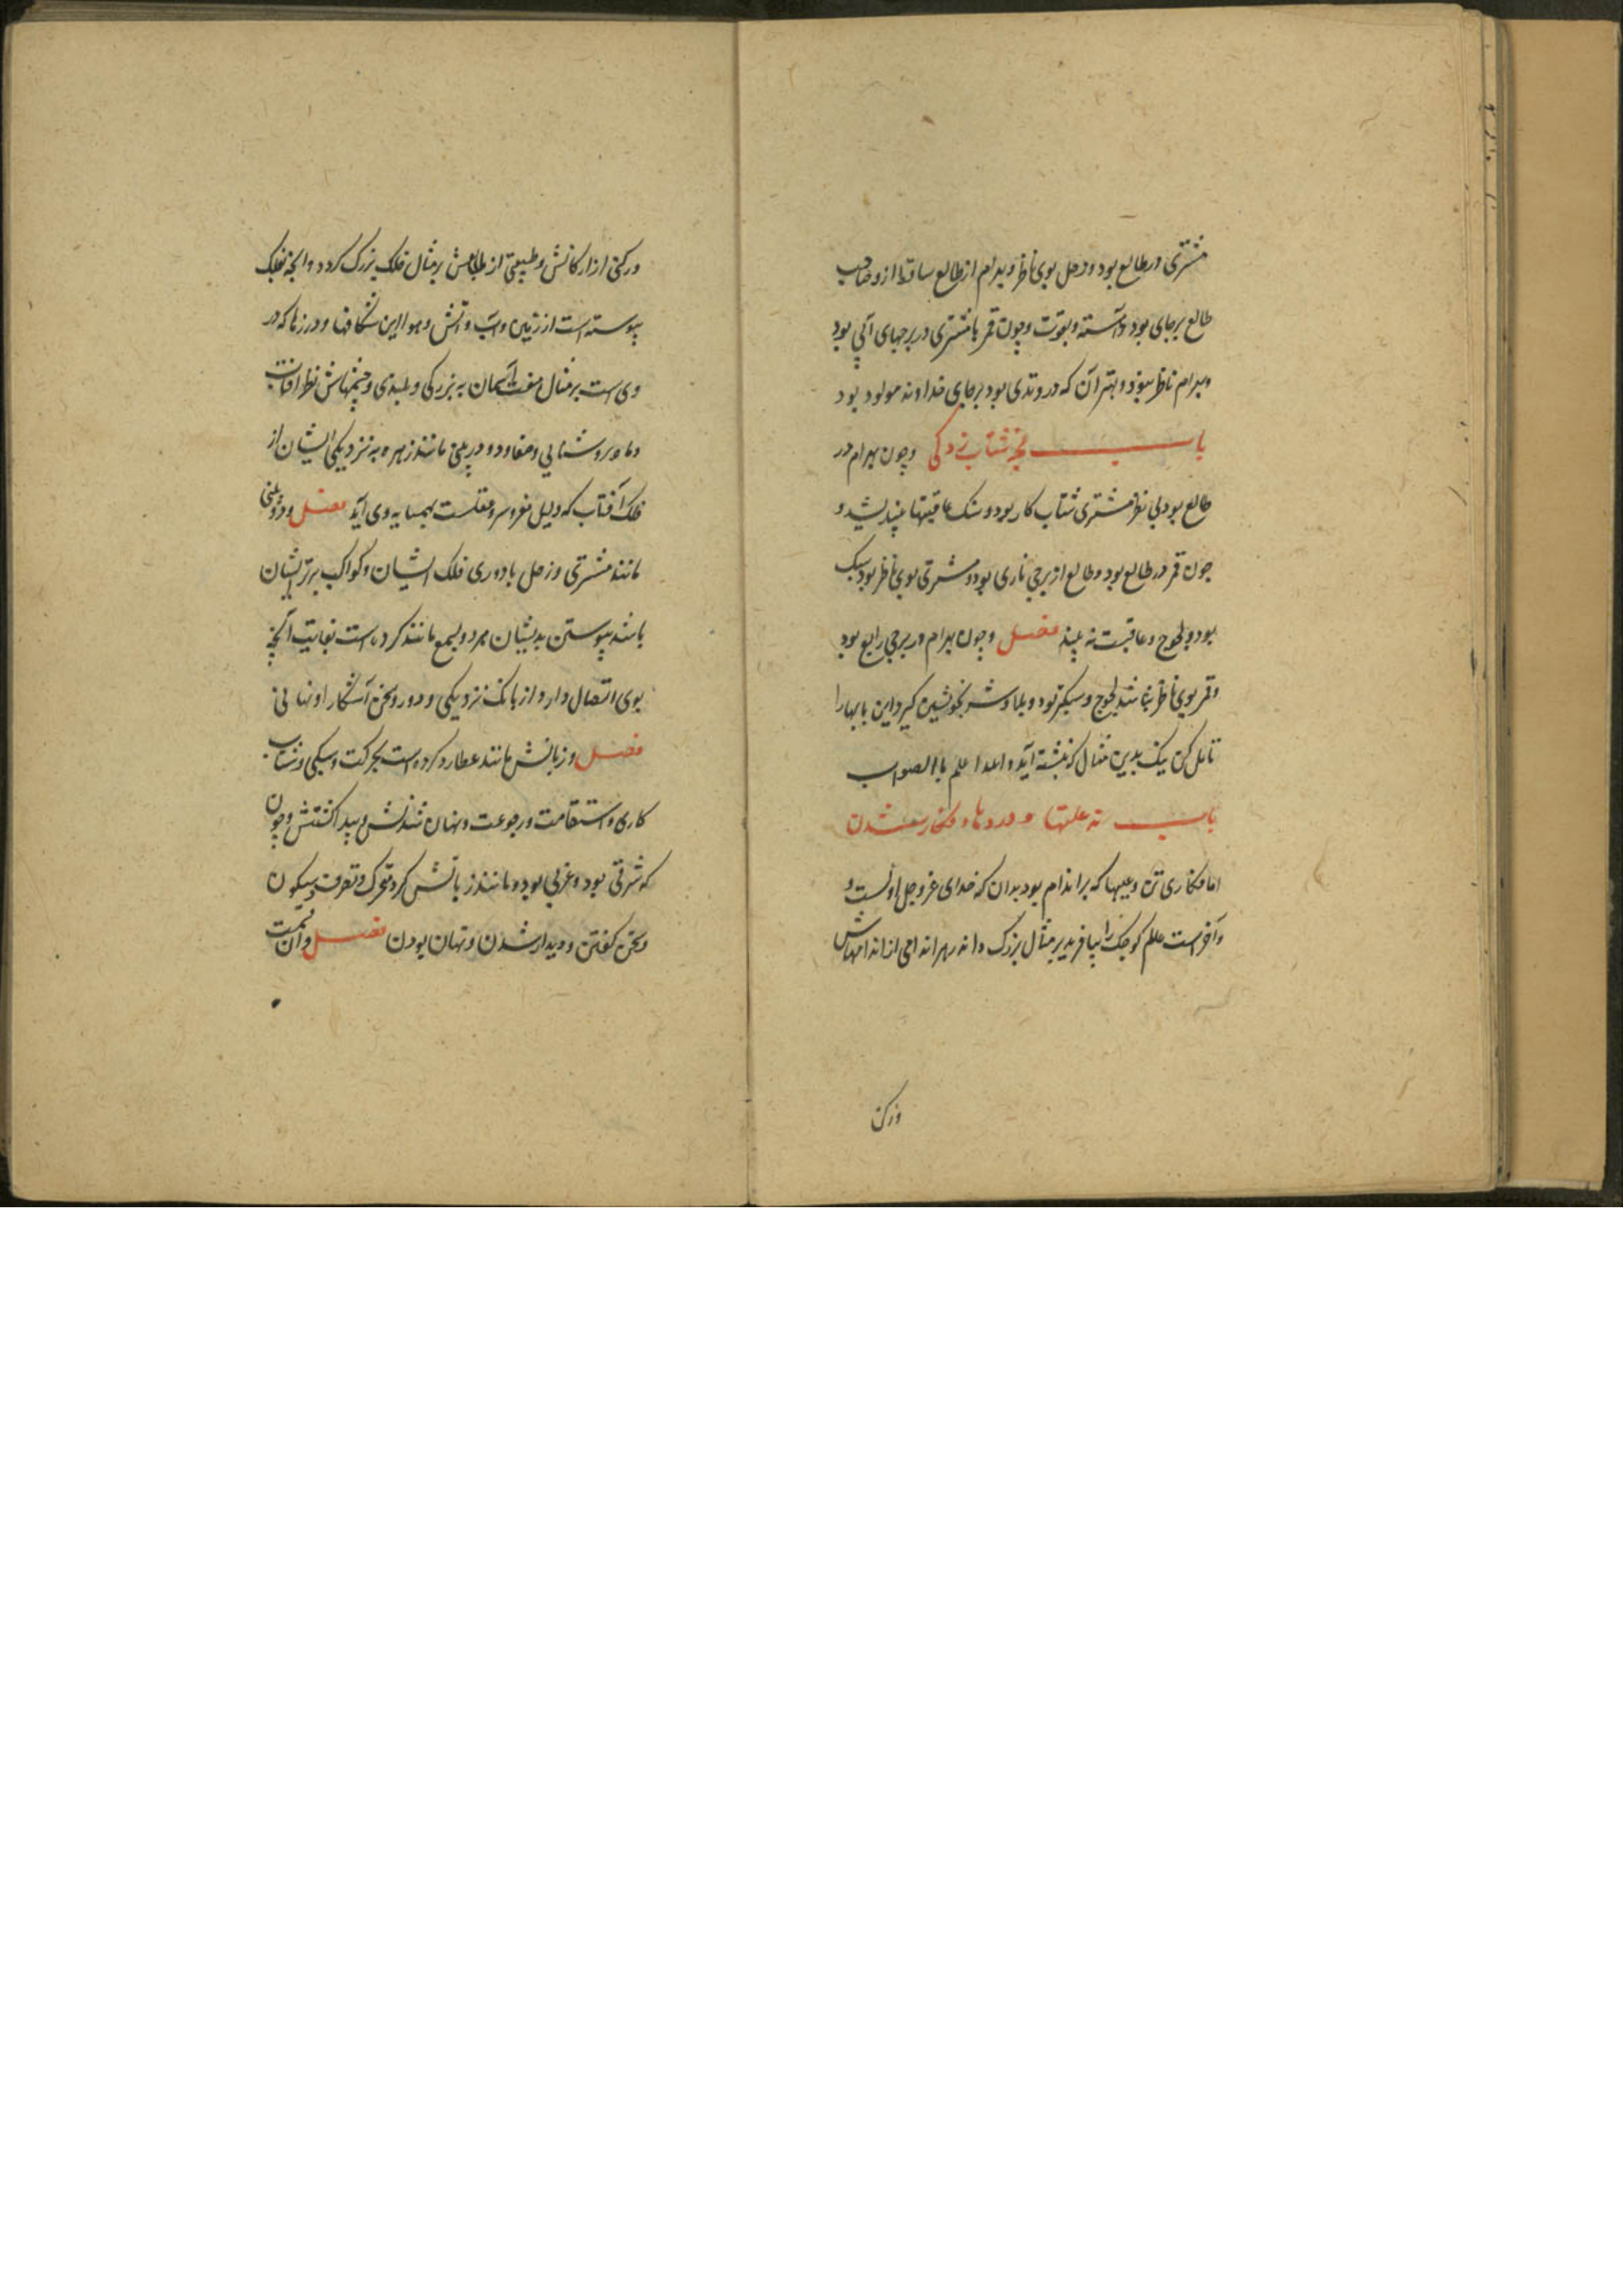 مشتری در طالع بود و زحل بوی ناظر و بهرام از طالع ساقط از و صاحب
طالع برجای بود و آهسته و بقوت و چون قمر با مشتری در برجهای آبی بود
و بهرام ناظر نبود و بهتر آن که در وتدی بود برجای خداوند مولود بود
باب شتاب زدگی و چون بهرام در
طالع بود بی نظر مشتری شتاب کار بود و سبک عاقبتها نیندیشد و
چون قمر در طالع بود و طالع از برجی ناری بود و مشتری بوی ناظر بود سبک
بود و لجوج و عاقبت نه بیند فصل و چون بهرام در برجی رابع بود
و قمر بوی ناظر باشد لجوج و سبکتر بود و بلا و شر بخویشتن گیرد این بابها را
تامل کن نیک بدین مثال که نبشته آید والله اعلم باالصواب
باب نه علتها و دردها و فکار شدن
اما فکاری تن و عیبها که بر اندام بود بدان که خدای عز و جل اولست و
و آخرست علم کوچک را بیافرید بر مثال بزرگ و هر اندامی از اندامهاش
ورکن
و رکنی از ارکانش و طبیعتی از طبایعش بر مثال فلک بزرگ کرد و آنچه بفلک
پیوسته است از زمین و آب و آتش و هوا این شکافها و درزها که در
وی است بر مثال هفت آسمان به بزرگی و بلندی و چشمهاش نظر آفتاب
و ماه بروشنایی و دو در بینی مانند زهره به نزدیکی ایشان از
فلک آفتاب که دلیل مغز و سر و عقلست همسایه وی آید فصل و دو بینی
مانند مشتری و زحل با دوری فلک ایشان و کواکب برتر ایشان
باشد پیوستن بدیشان مرد و بسمع مانند کرده است بغایت آنچه
بوی اتصال دارد از بانک نزدیکی و دور و سخن آشکارا و نهانی
فصل و زبانش مانند عطارد کرده است بحرکت و سبکی و شتاب
کاری و استقامت و رجوعت و نهان شدنش و پیدا گشتنش و چون
که شرقی بود و غربی بود و مانند زبانش کرد تحرک و تصرف و سکون
و سخن گفتن و دیدار شدن و نهان بودن فصل و آن